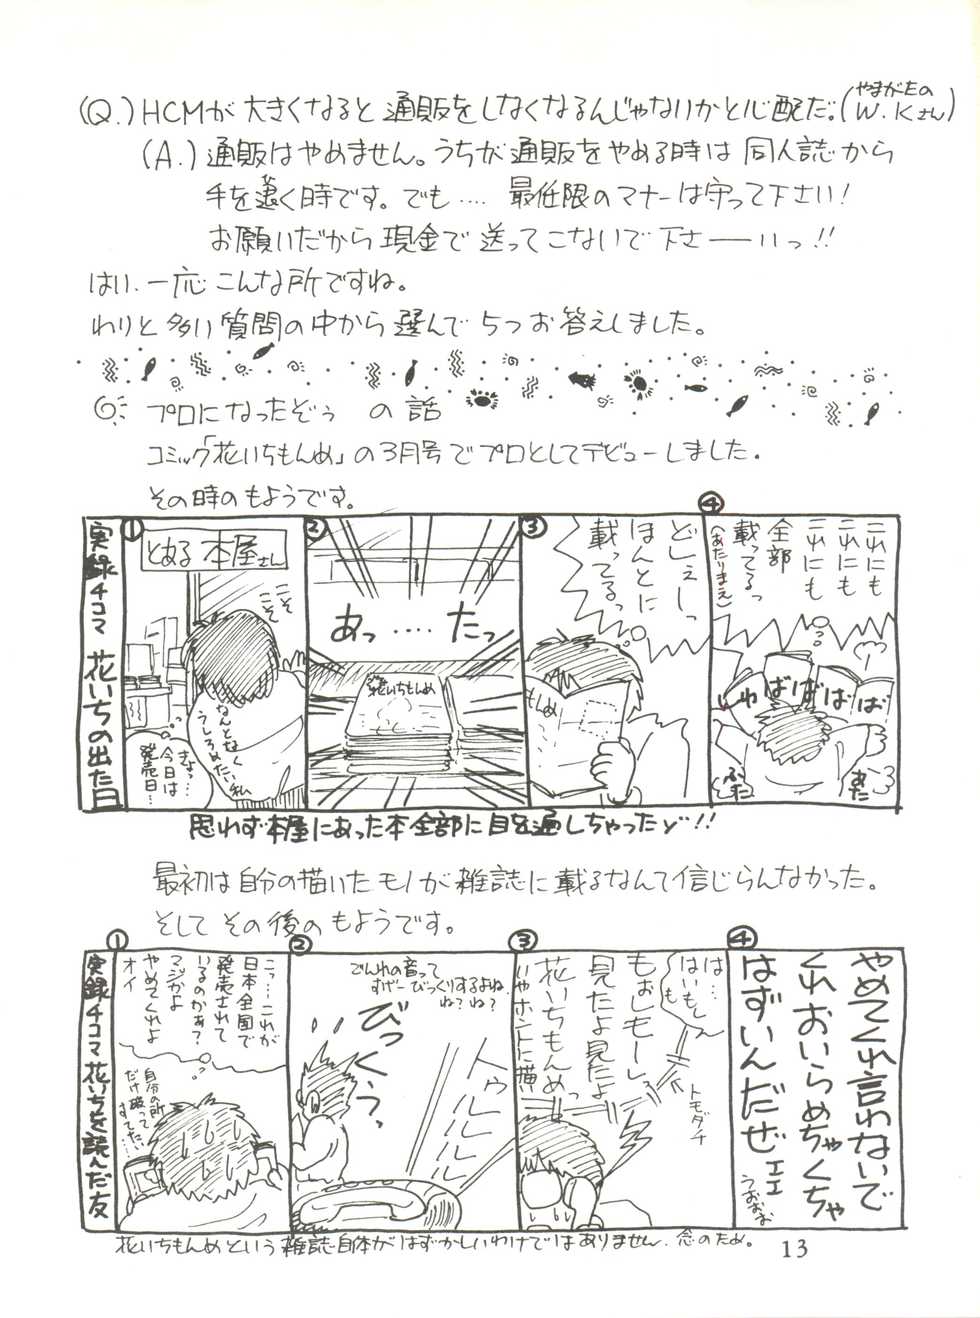 (Q.) HCMが大きくなると通販をしなくなるんじゃないかと心配だ。(やまがたのW.Kさん)
(A.) 通販はやめません。うちが通販をやめる時は同人誌から
手を退く時です。でも…. 最低限のマナーは守って下さい!
お願いだから現金で送ってこないで下さーいっ!!
はい.一応こんな所ですね。
わりと多い質問の中から選んで5つお答えしました。
プロになったぞぅ の話
コミック「花いちもんめ」の3月号でプロとしてデビューしました。
その時のもようです。
実録4コマ 花いちの出た日
①
とある本屋さん
こそ
こそ
なんとなく
うしろめたい私
きょっ…
今日は
発売日…
②
あっ….たっ
花いちもんめ
③
どしぇーっ
ほんとに
載ってるっ
もんめ
④
これにも
これにも
これにも
全部
載ってるっ
(あたりまえ)
しゅばばばばば
あた
ふた
思わず本屋にあった本全部に目を通しちゃったゾ!!
最初は自分の描いたモノが雑誌に載るなんて信じらんなかった。
そしてその後のもようです。
実録4コマ 花いちを読んだ友
①
こっ…これが
日本全国で
発売されて
いるのかぁ?
マジかよ
やめてくれよ
オイ
自分の所
だけ破ってたい
すて…
②
でんわの音って
すげーびっくりするよね.
ね?ね?
びっくぅっ
トゥルルルル
③
は…
はいもし
もし
トモダチ
もぉしもーし.
見たよ見たよ
花いちもんめっ
いやホントに描い
④
やめてくれ言わないで
くれおいらめちゃくちゃ
はずいんだぜェェ
うおおお
花いちもんめという雑誌自体がはずかしいわけではありません.念のため。
13